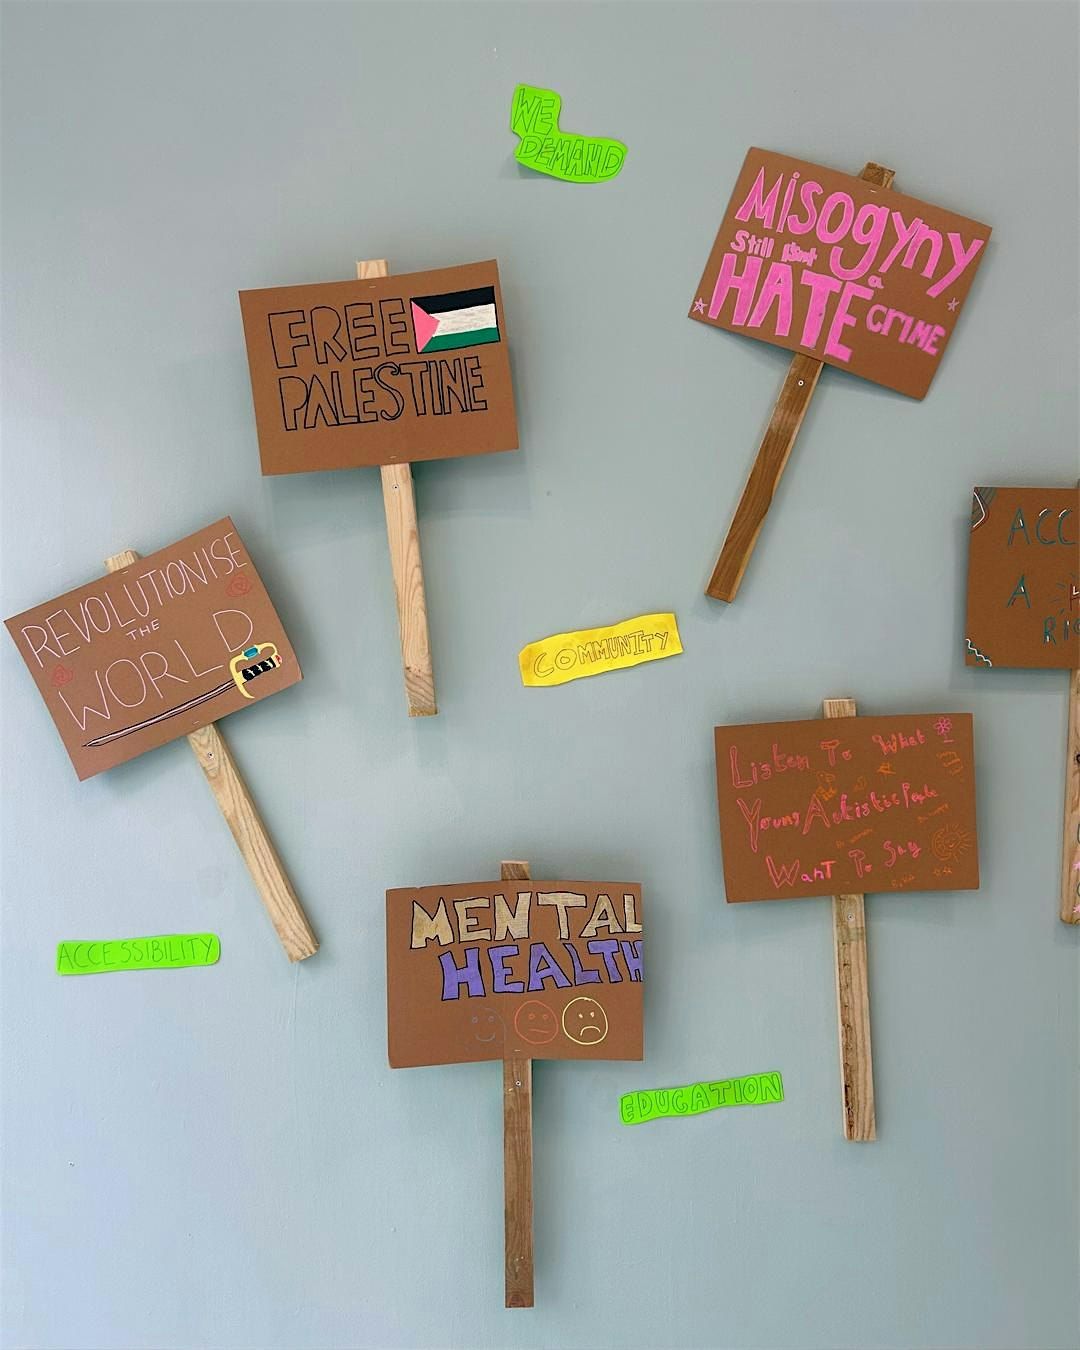 WE
DEMAND
MISOGYNY
Still isn't a
HATE CRIME
FREE
PALESTINE
REVOLUTIONISE
THE
WORLD
ACC
A
RIG
COMMUNITY
Listen To What
Young Autistic People
Want To Say
MENTAL
HEALTH
ACCESSIBILITY
EDUCATION